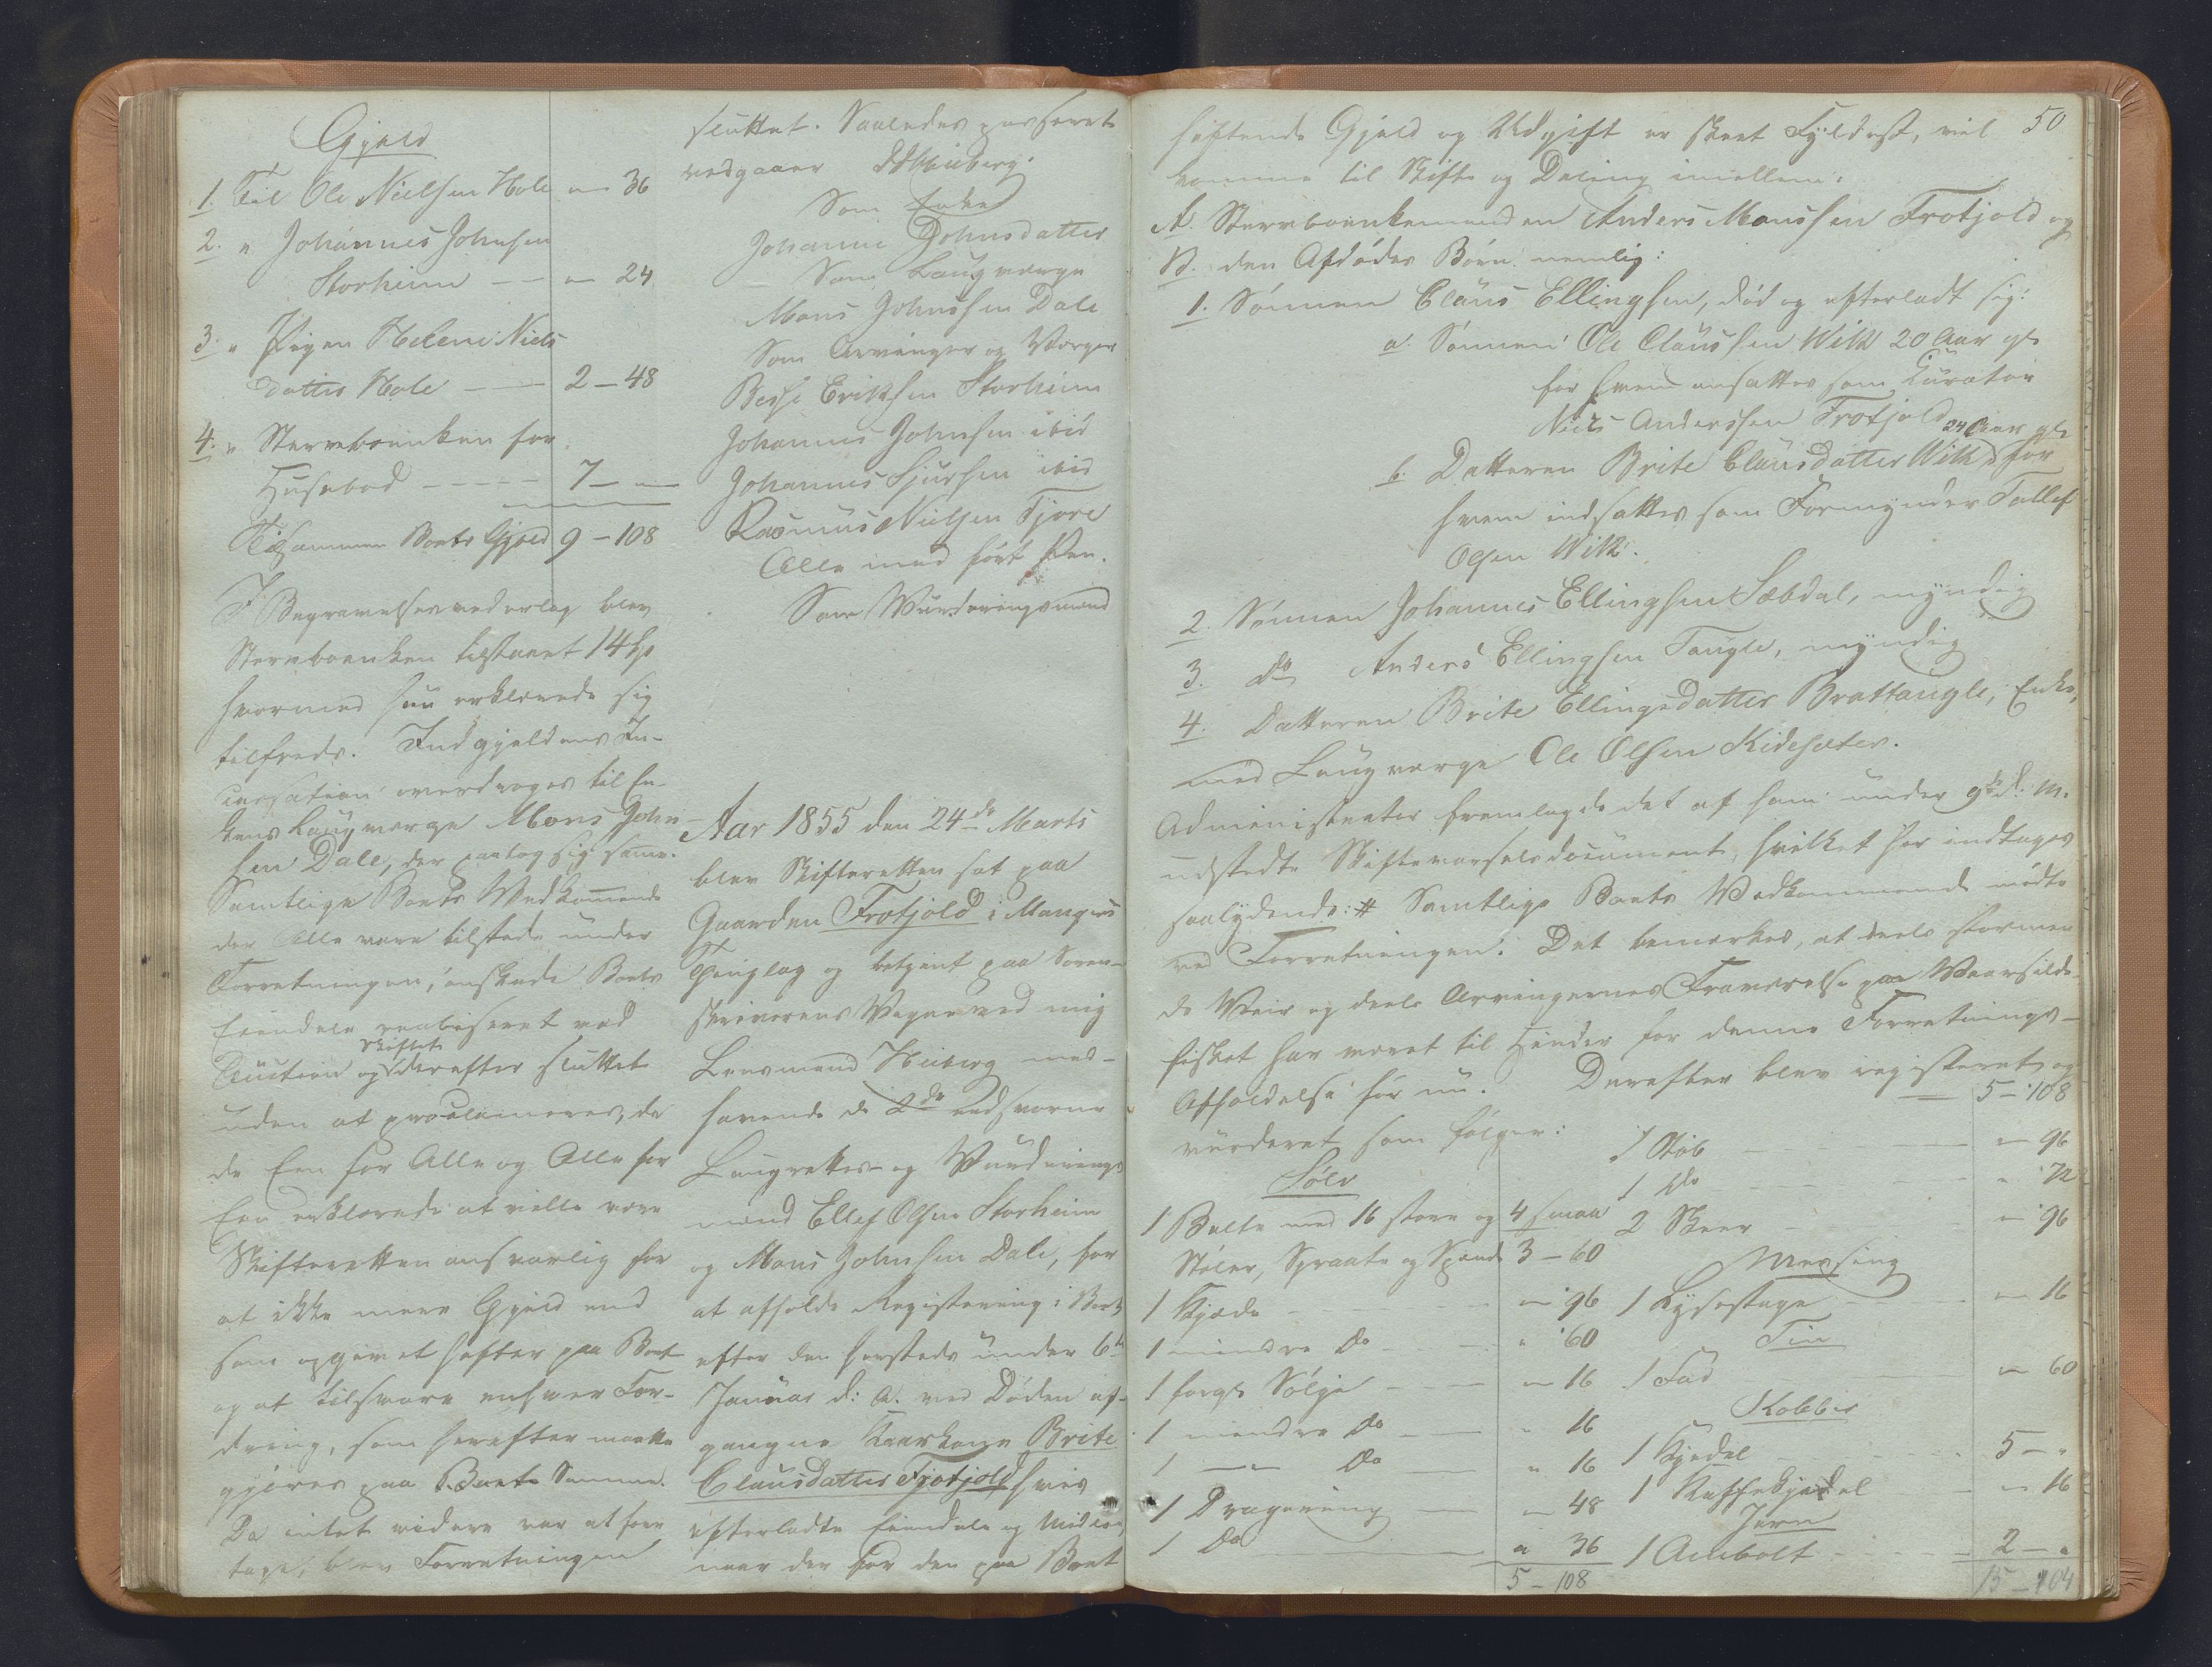 Gjæld
1. Til Ole Nielsen Hole " 36
2. " Johannes Johnsen
Storheim — " 24
3. " Pigen Helene Niels
datter Hole — 2 - 48
4. " Stervboenken for
Husebod — 7 - "
Tilsammen Boets Gjæld 9 - 108
I Begravelsesvederlag blev
Sterboenken tilstaaet 14 Sp
hvormed hun erklærede sig
tilfreds. Indgjældens In-
cassation overdroges til En-
kens Laugværge Mons John-
sen Dale, der paatog sig samme.
Samtlige Boets Vedkommende
der Alle vare tilstede under
Forretningen, ønskede Boets
Eiendele realiseret ved
Auction og Skiftet derefter sluttet
uden at proclameres, da
de Een for Alle og Alle for
Een erklærede at ville være
Skifteretten ansvarlig for
at ikke mere Gjæld end
som opgivet hefter paa Boet
og at tilsvare enhver For-
dring, som herefter maatte
gjøres paa Boets Samme.
Da intet videre var at fore
tage, blev Forretningen
sluttet. Saaledes passeret
vedgaaer Heiberg.
Som Enke
Johanne Johnsdatter
Som Laugværge
Mons Johnssen Dale
Som Arvinger og Værger
Besse Eriksen Storheim
Johannes Johnsen ibid
Johannes Sjursen ibid
Rasmus Nielsen Fjore
Alle med ført Pen.
Som Vurderingsmænd
Aar 1855 den 24de Marts
blev Skifteretten sat paa
Gaarden Frotjold i Mangers
Thinglag og betjent paa Soren-
skriverens Vegne ved mig
Lensmand Heiberg med-
havende de 2de edsvorne
Laugrettes- og Vurderings
mænd Ellef Olsen Storheim
og Mons Johnsen Dale, for
at afholde Registrering i Boet
efter den sammesteds under 6te
Januar d: A. ved Døden af-
gangne Kaarkone Brite
Clausdatter Frotjold hvis
efterladte Eiendele og Midler,
naar der for den paa Boet
50
heftende Gjæld og Udgift er skeet Fyldest, vil
komme til Skifte og Deling imellem:
A. Stervboenkemanden Anders Monssen Frotjold og
B. den Afdødes Børn nemlig:
1. Sønnen Claus Ellingsen, død og efterladt sig:
a. Sønnen Ole Claussen Wiik 20 Aar gl
for hvem ansattes som Curator
Niels Anderssen Frotjold
b. Datteren Brite Clausdatter Wiik 24 Aar gl for
hvem indsattes som Formynder Tollef
Olsen Wiik.
2. Sønnen Johannes Ellingsen Sæbdal, myndig
3. do Anders Ellingsen Taugle, myndig
4. Datteren Brite Ellingsdatter Brattaugle, Enke,
med Laugværge Ole Olsen Kidesæter.
Administrator fremlagde det af ham under 9de d: M.
udstedte Skiftevarselsdocument, hvilket her indtages
saalydende: # Samtlige Boets Vedkommende mødte
ved Forretningen. Det bemærkes, at deels stormen
de Veir og deels Arvingernes Fraværelse paa Vaarsilde
fisket har været til Hinder for denne Forretnings-
Afholdelse før nu. Derefter blev registeret og
vurderet som følger:
Sølv
1 Belte med 16 store og 4 smaa
Støler, Spraate og Spænde 3 - 60
1 Kjæde " 96
1 mindre do " 60
1 forgl Sølje " 16
1 mindre do " 16
1 — do " 16
1 Dragering " 48
1 Do " 36
5 - 108
5 - 108
1 Støb " 96
1 do " 72
2 Skeer " 96
Messing
1 Lysestage " 16
Tin
1 Fad " 60
Kobber
1 Kjedel 5 - "
1 Kaffekjedel " 16
Jern
1 Ambolt 2 - "
15 - 104